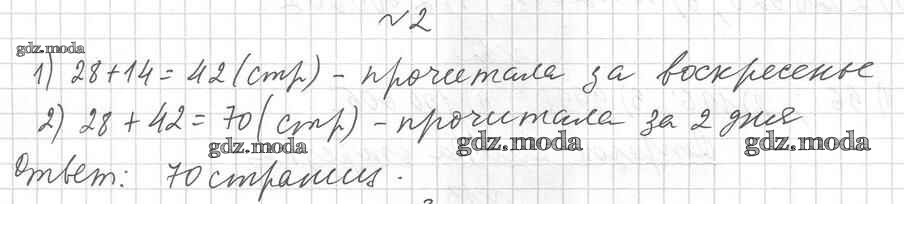 № 2
gdz.moda
1) 28+14=42 (стр) - прочитала за воскресенье
2) 28+42=70 (стр) - прочитала за 2 дня
gdz.moda gdz.moda gdz.moda
Ответ: 70 страниц.